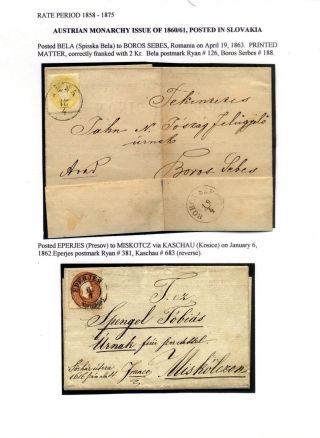 RATE PERIOD 1858 - 1875
AUSTRIAN MONARCHY ISSUE OF 1860/61, POSTED IN SLOVAKIA
Posted BELA (Spisska Bela) to BOROS SEBES, Romania on April 19, 1863. PRINTED
MATTER, correctly franked with 2 Kr. Bela postmark Ryan # 126, Boros Serbes # 188.
BELA
19
4
Tekintetes
Tahn N. Jószág Felügyelő
úrnak
Arad
Boros Sebes
BOROS
Posted EPERJES (Presov) to MISKOTCZ via KASCHAU (Kosice) on January 6,
1862.Eperjes postmark Ryan # 381, Kaschau # 683 (reverse).
EPERIES
T. cz
Spengel Tobiás
Úrnak
franco
Miskólczon